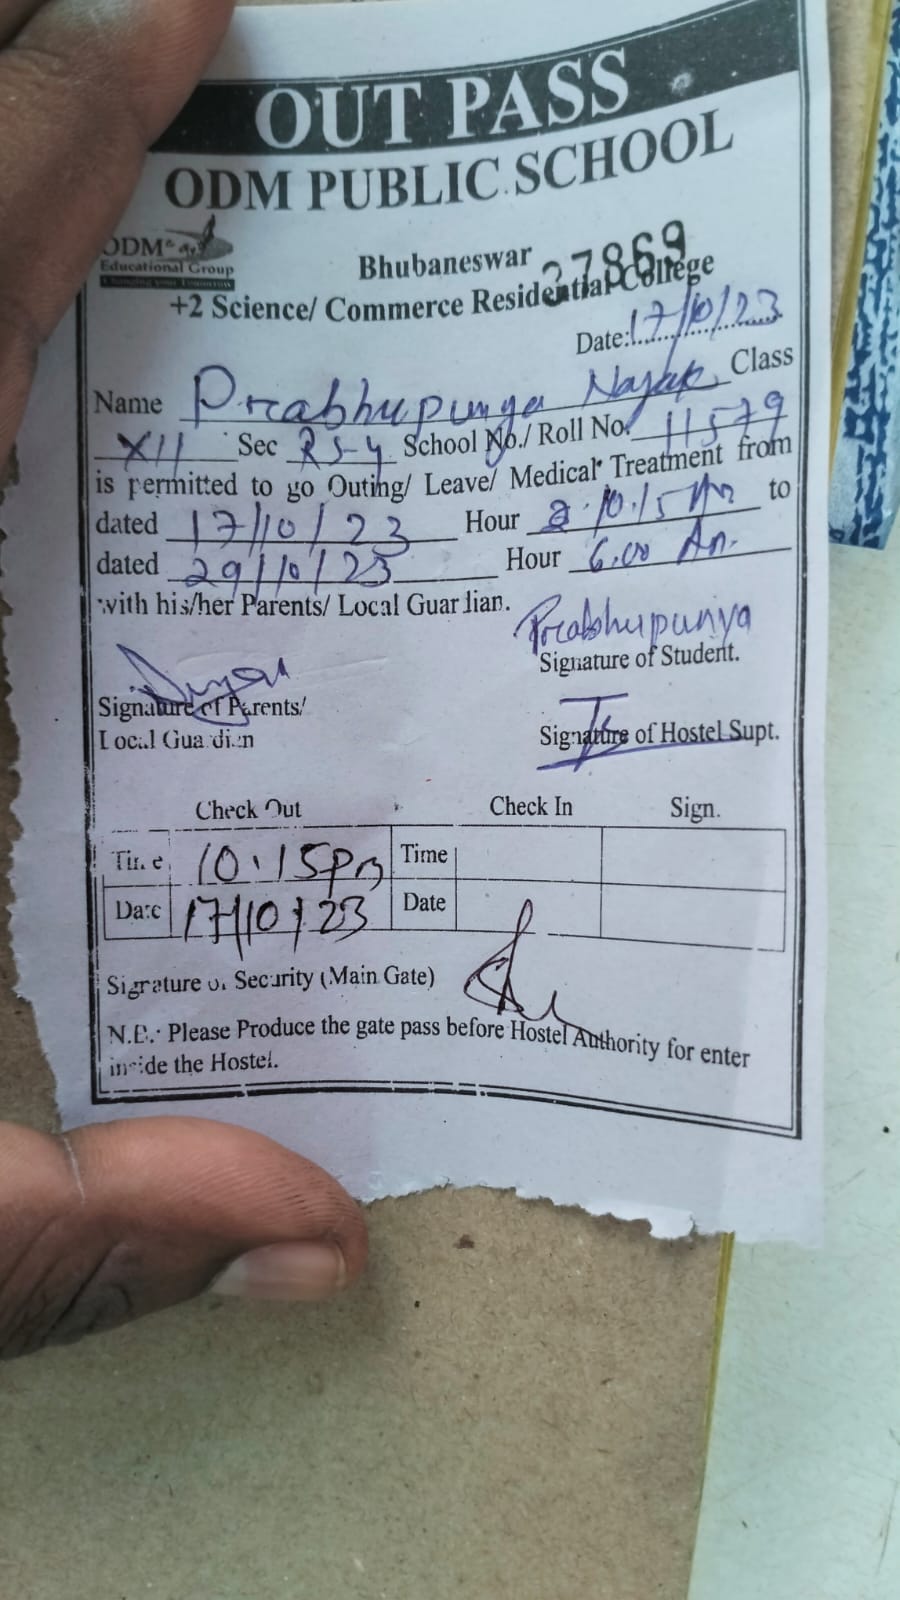 OUT PASS
ODM PUBLIC SCHOOL
ODM
Educational Group
Changing your Tomorrow
Bhubaneswar
27869
+2 Science/ Commerce Residential College
Date: 17/10/23
Name Prabhupunya Nayak Class
XII Sec RS-4 School No./ Roll No. 11579
is permitted to go Outing/ Leave/ Medical Treatment from
dated 17/10/23 Hour 10.15 to
dated 29/10/23 Hour 6.00
with his/her Parents/ Local Guardian.
Prabhupunya
Signature of Student.
Signature of Parents/
Local Guardian
Signature of Hostel Supt.
Check Out Check In Sign.
Time 10.15pm Time
Date 17/10/23 Date
Signature of Security (Main Gate)
N.B.: Please Produce the gate pass before Hostel Authority for enter
inside the Hostel.